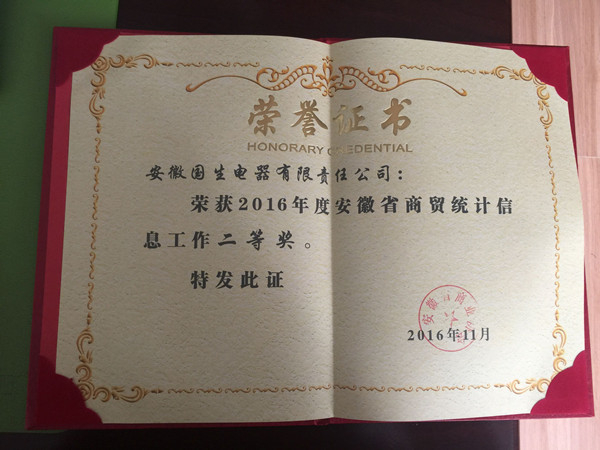 荣誉证书
HONORARY CREDENTIAL
安徽国生电器有限责任公司：
荣获2016年度安徽省商贸统计信
息工作二等奖。
特发此证
2016年11月